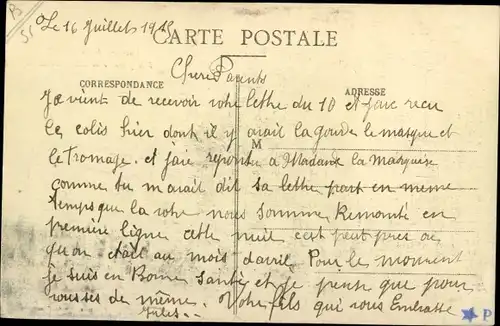 B
51
Le 16 Juillets 1915
CARTE POSTALE
Chere Parents
CORRESPONDANCE
ADRESSE
Je vient de recevoir votre lettre du 10 et jaie recu
le colis hier dont il y avait la gourde le masque et
M
le fromage. et jaie repontu a Madame la Marquise
comme tu mavait dit sa lettre part en meme
temps que la votre nous somme Remonté en
première ligne cette nuit cest peut pres ou
quon etait au mois davril. Pour le moment
je suis en Bonne Santée et je pense que pour
vous ses de même. Votre fils qui vous Embrasse
Jules..
P